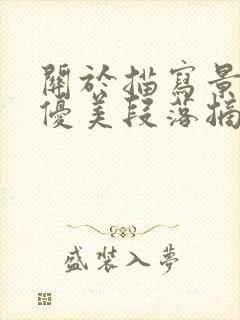 關於描寫景
優美段落摘
盛裝入夢